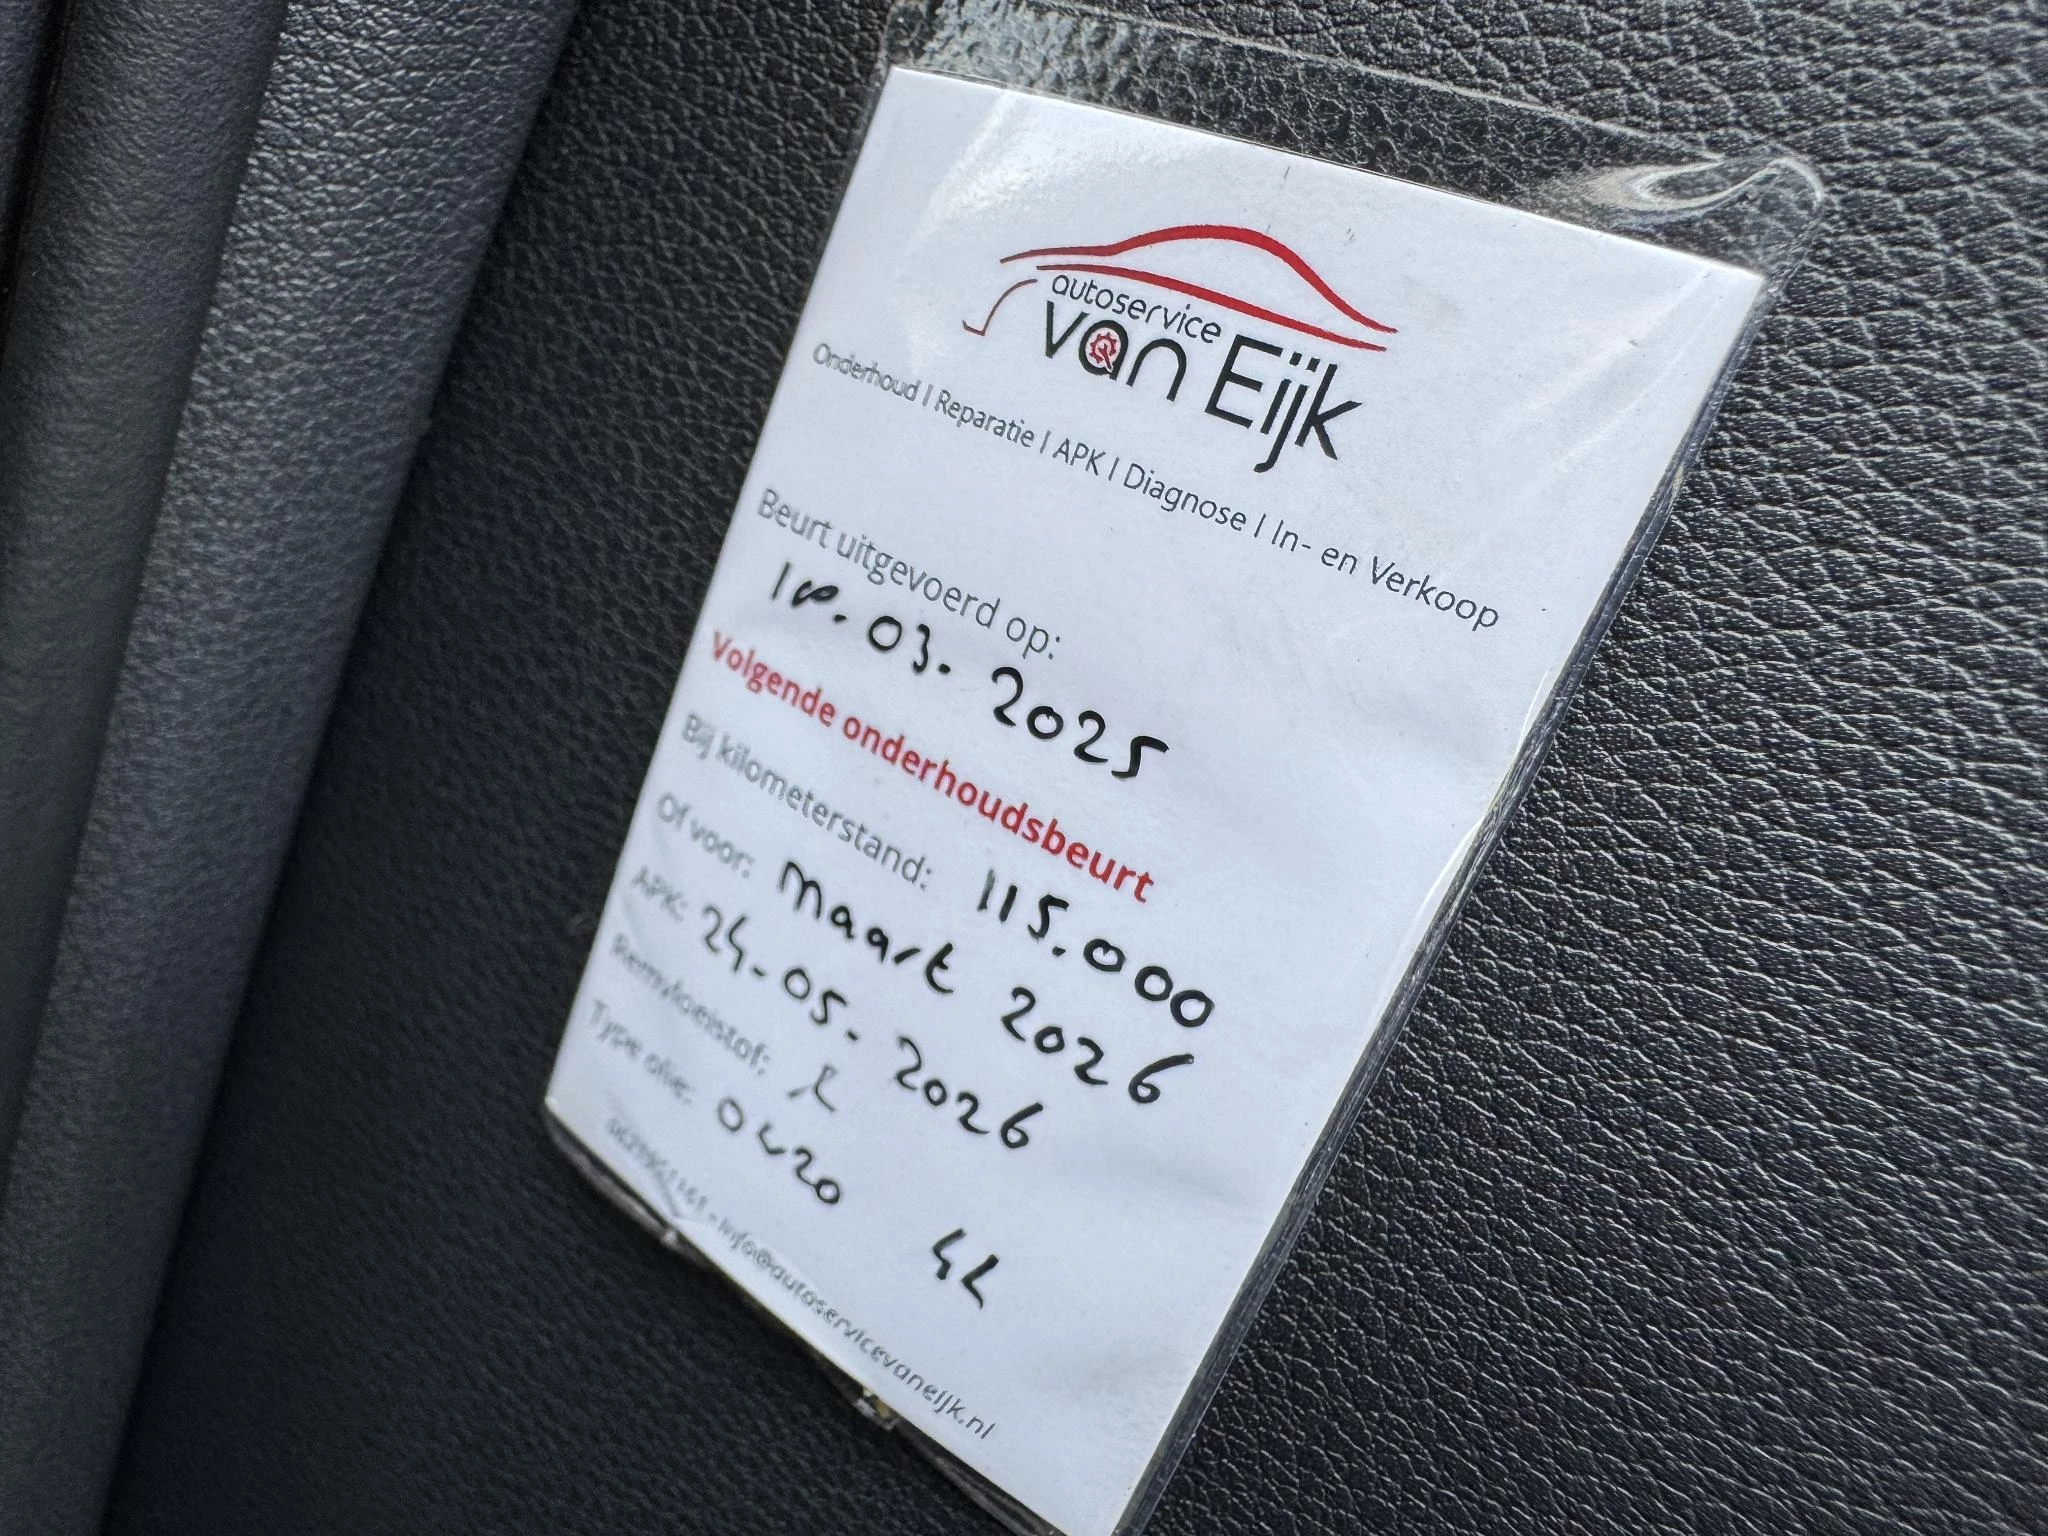 autoservice
van Eijk
Onderhoud | Reparatie | APK | Diagnose | In- en Verkoop
Beurt uitgevoerd op:
10-03-2025
Volgende onderhoudsbeurt
Bij kilometerstand: 115.000
Of voor: maart 2026
APK: 24-05-2026
Remvloeistof:
Type olie: 0W20 4L
info@autoservicevaneijk.nl